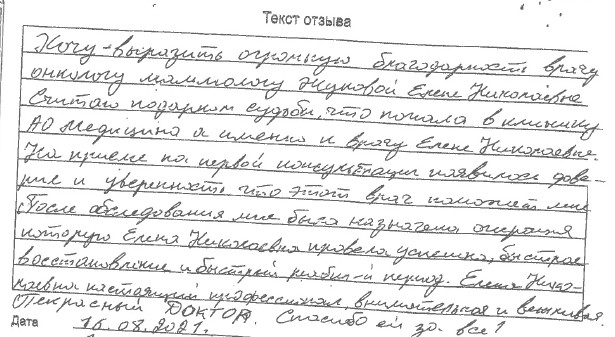 Текст отзыва
Хочу выразить огромную благодарность врачу
онкологу маммологу Жуковой Елене Николаевне
Считаю подарком судьбы, что попала в клинику
АО Медицина а именно к врачу Елене Николаевне.
На приеме на первой консультации появилось дове-
рие и уверенность что этот врач поможет мне
После обследования мне была назначена операция
которую Елена Николаевна провела успешно, быстрое
восстановление и быстрый реабил-й период. Елена Нико-
лаевна настоящий профессионал, внимательная и вежливая.
Прекрасный Доктор. Спасибо ей за все!
Дата 16.08.2021.